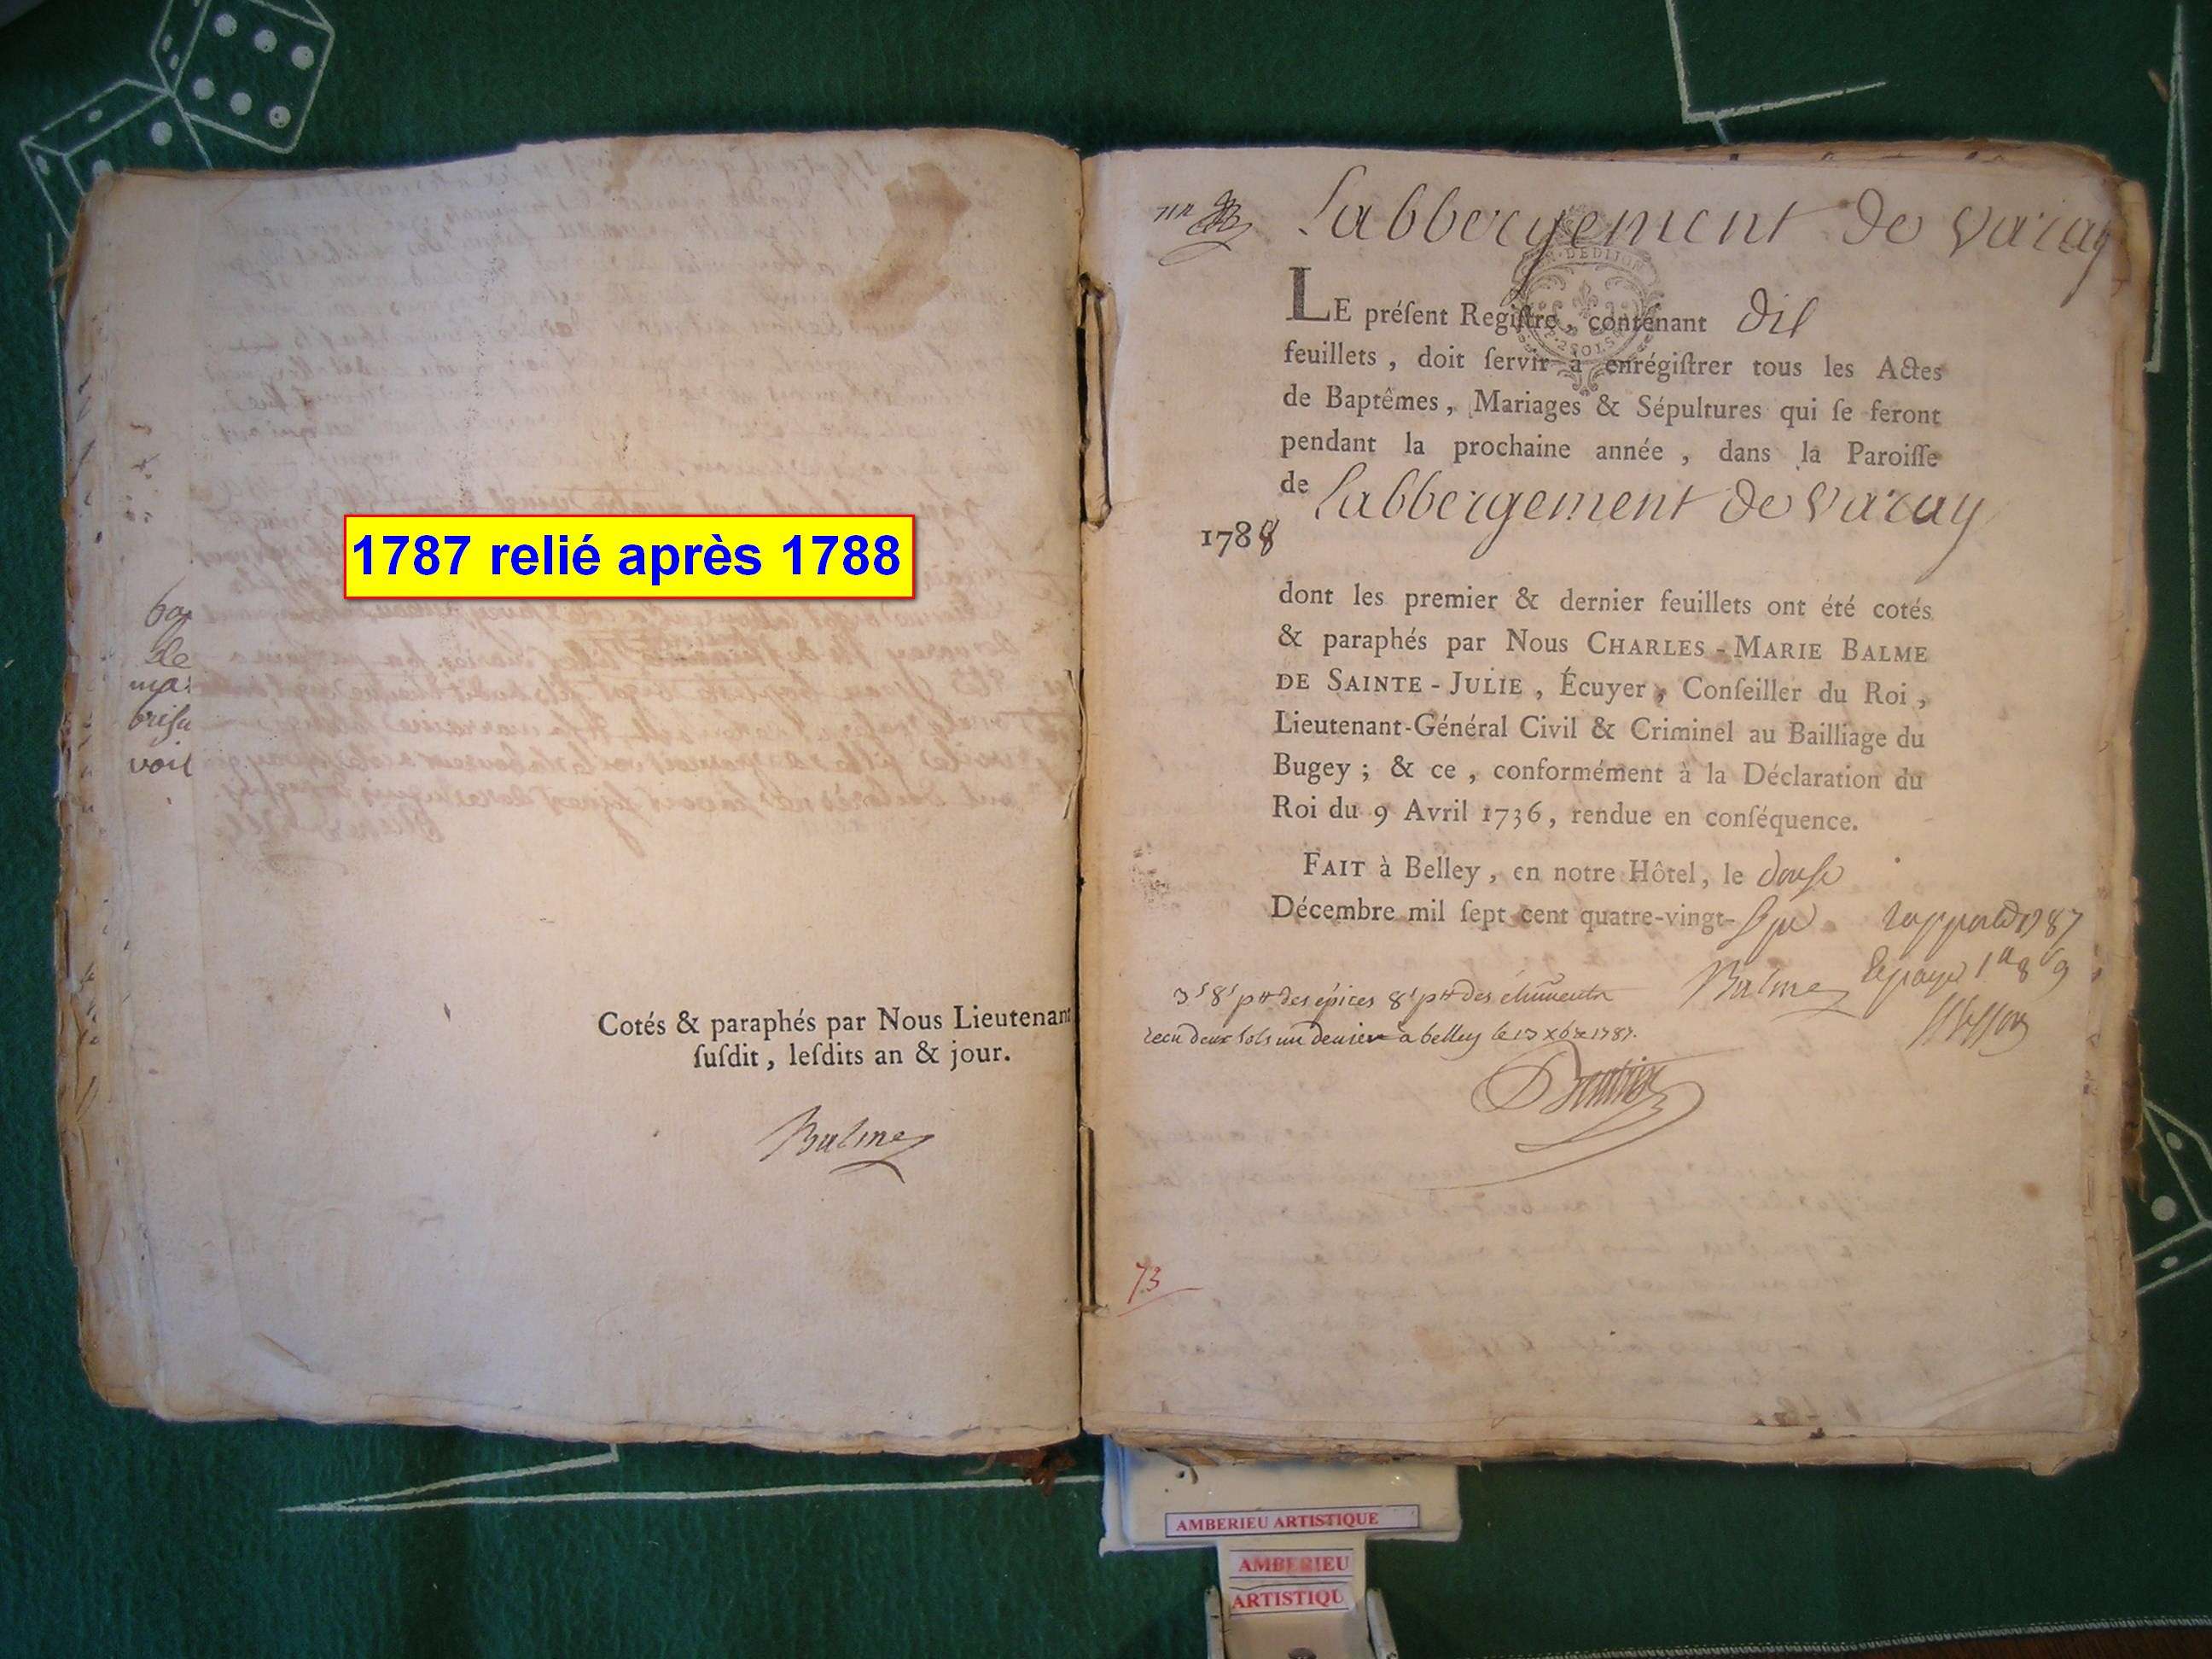 1787 relié après 1788
bap
de
ma
brisa
voil
Cotés & paraphés par Nous Lieutenant
ſuſdit, leſdits an & jour.
Balme
Labbergement de Varay
LE préſent Regiſtre, contenant dix
feuillets, doit ſervir à enrégiſtrer tous les Actes
de Baptêmes, Mariages & Sépultures qui ſe feront
pendant la prochaine année, dans la Paroiſſe
de Labbergement de Varay
1788
dont les premier & dernier feuillets ont été cotés
& paraphés par Nous CHARLES-MARIE BALME
DE SAINTE-JULIE, Écuyer, Conſeiller du Roi,
Lieutenant-Général Civil & Criminel au Bailliage du
Bugey; & ce, conformément à la Déclaration du
Roi du 9 Avril 1736, rendue en conſéquence.
FAIT à Belley, en notre Hôtel, le douse
Décembre mil ſept cent quatre-vingt-sept
rapporté 1787
Balme
3ˢ 8ᵈ pʳ des épices 8ᵈ pʳ des
recu deux sols un denier a belley le 13 Xbre 1787.
73
GEN. DE DIJON
2 SOLS
AMBERIEU ARTISTIQUE
AMBERIEU
ARTISTIQU